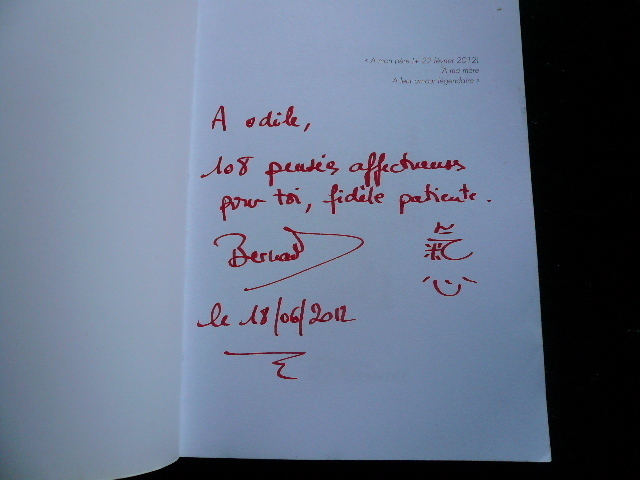 « A mon père (+ 22 février 2012)
A ma mère
A leur amour légendaire »
A odile,
108 pensées affectueuses
pour toi, fidèle patiente.
Bernard
le 18/06/2012